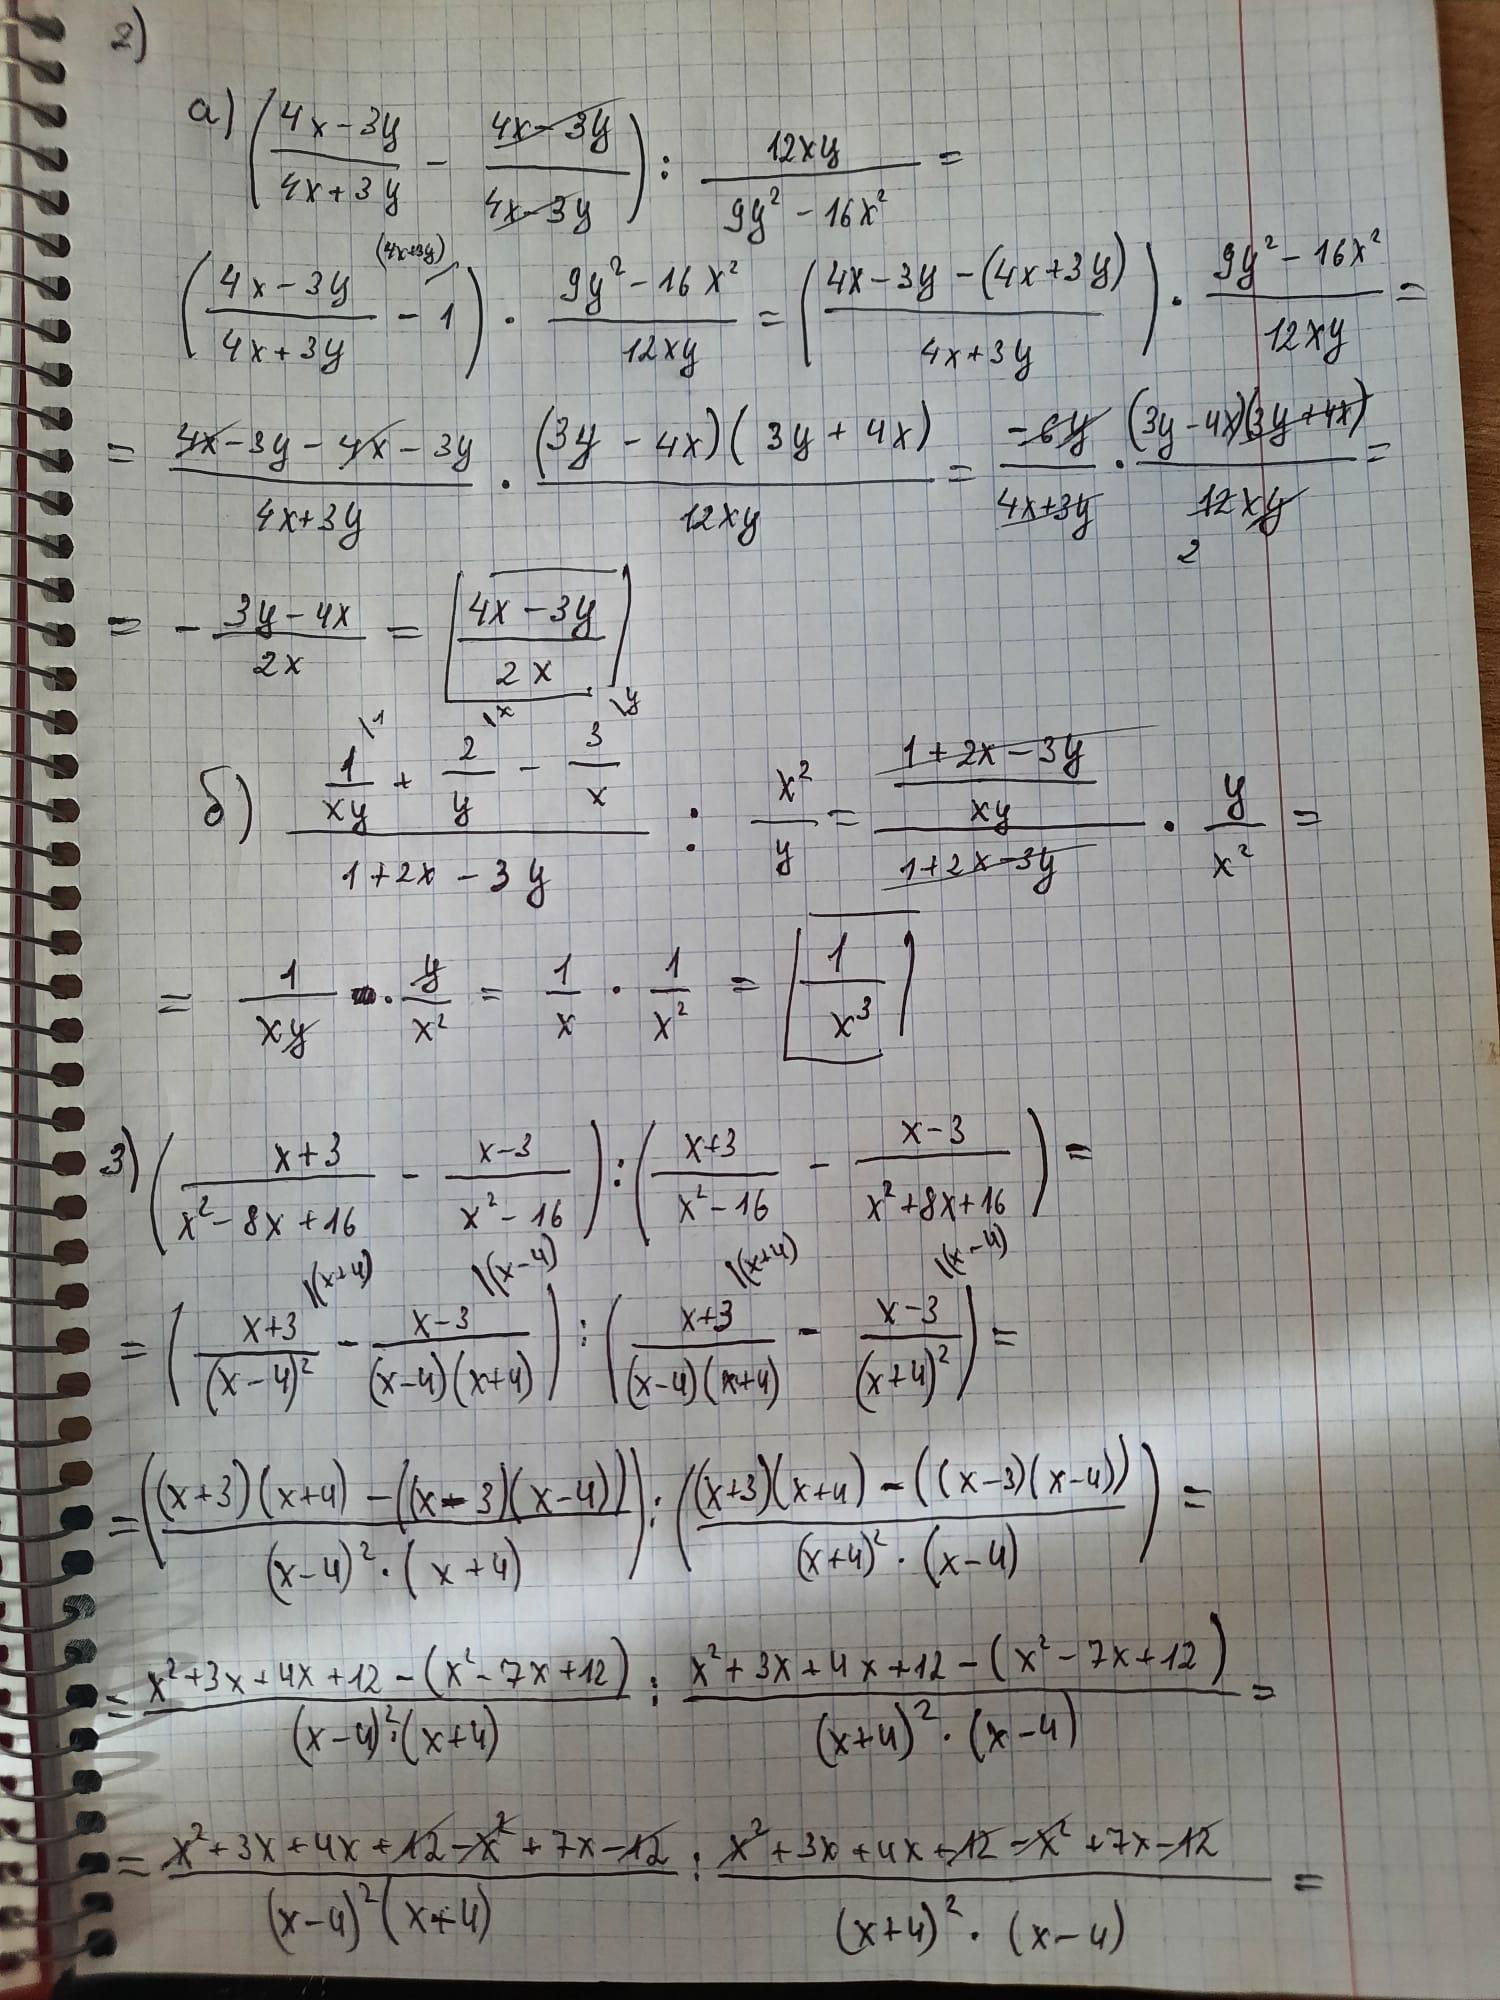 2)
а) ((4x-3y)/(4x+3y) - (4x-3y)/(4x-3y)) : 12xy/(9y²-16x²) =
((4x-3y)/(4x+3y) - 1^(4x+3y)) · (9y²-16x²)/12xy = ((4x-3y-(4x+3y))/(4x+3y)) · (9y²-16x²)/12xy =
= (4x-3y-4x-3y)/(4x+3y) · (3y-4x)(3y+4x)/12xy = -6y/(4x+3y) · (3y-4x)(3y+4x)/12xy =
2
= - (3y-4x)/2x = (4x-3y)/2x
б) (1/xy \1 + 2/y \x - 3/x \y)/(1+2x-3y) : x²/y = ((1+2x-3y)/xy)/(1+2x-3y) · y/x² =
= 1/xy · y/x² = 1/x · 1/x² = 1/x³
3) ((x+3)/(x²-8x+16) - (x-3)/(x²-16)) : ((x+3)/(x²-16) - (x-3)/(x²+8x+16)) =
= ((x+3)/(x-4)² |(x+4) - (x-3)/(x-4)(x+4) |(x-4)) : ((x+3)/(x-4)(x+4) |(x+4) - (x-3)/(x+4)² |(x-4)) =
= (((x+3)(x+4)-((x-3)(x-4)))/((x-4)²·(x+4))) : (((x+3)(x+4)-((x-3)(x-4)))/((x+4)²·(x-4))) =
= (x²+3x+4x+12-(x²-7x+12))/((x-4)²·(x+4)) : (x²+3x+4x+12-(x²-7x+12))/((x+4)²·(x-4)) =
= (x²+3x+4x+12-x²+7x-12)/((x-4)²(x+4)) : (x²+3x+4x+12-x²+7x-12)/((x+4)²·(x-4)) =